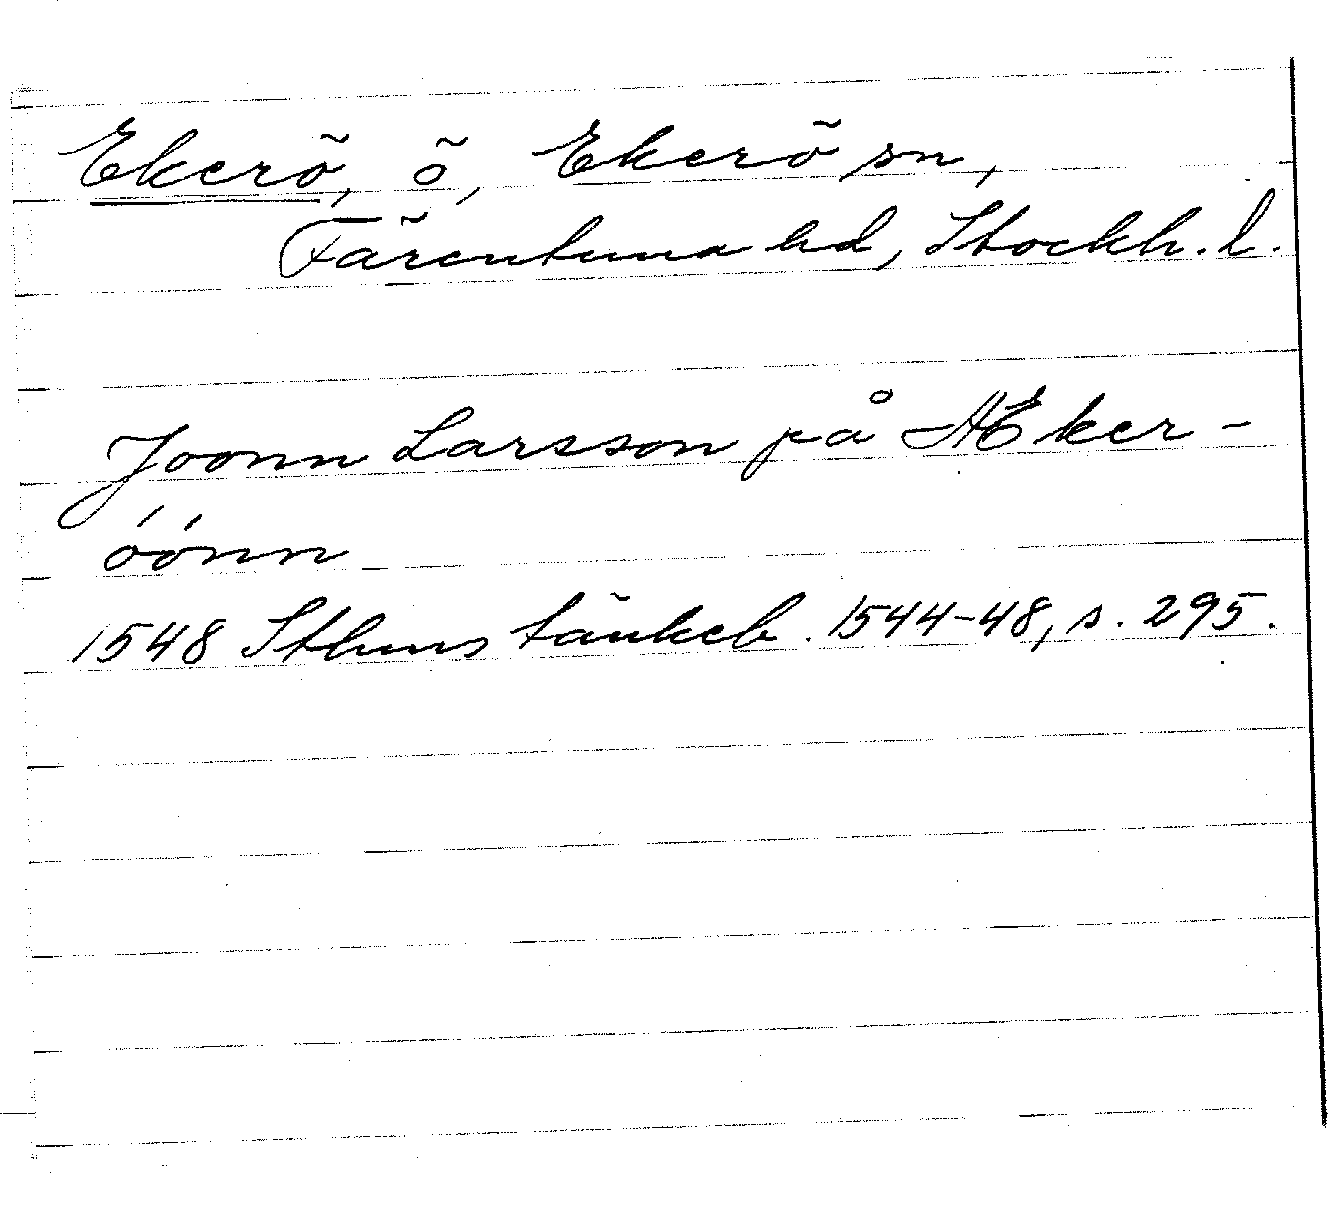 Ekerö, ö, Ekerö sn,
Färentuna hd, Stockh. l.
Joonn Larsson på Æker-
óónn
1548 Sthms tänkeb. 1544-48, s. 295.